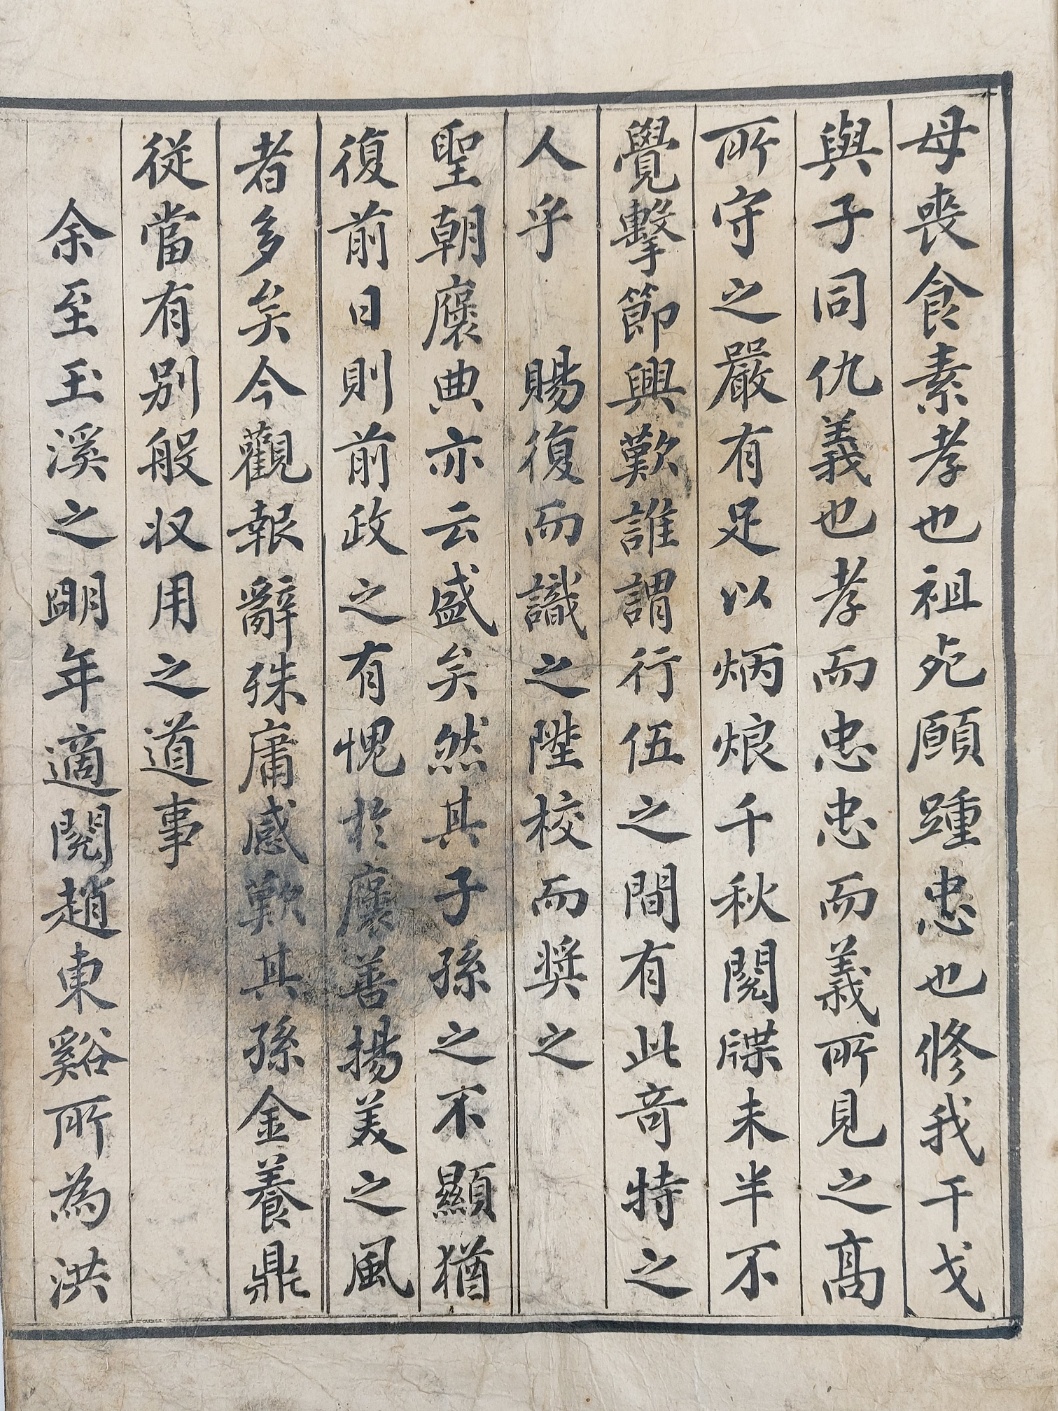 母喪食素孝也祖死願踵忠也修我干戈
與子同仇義也孝而忠忠而義所見之高
所守之嚴有足以炳烺千秋閱牒未半不
覺擊節興歎誰謂行伍之間有此奇特之
人乎 賜復而識之陞校而奬之
聖朝褒典亦云盛矣然其子孫之不顯猶
復前日則前政之有愧於褒善揚美之風
者多矣今觀報辭殊庸感歎其孫金養鼎
從當有別般収用之道事
余至玉溪之明年適閱趙東谿所為洪